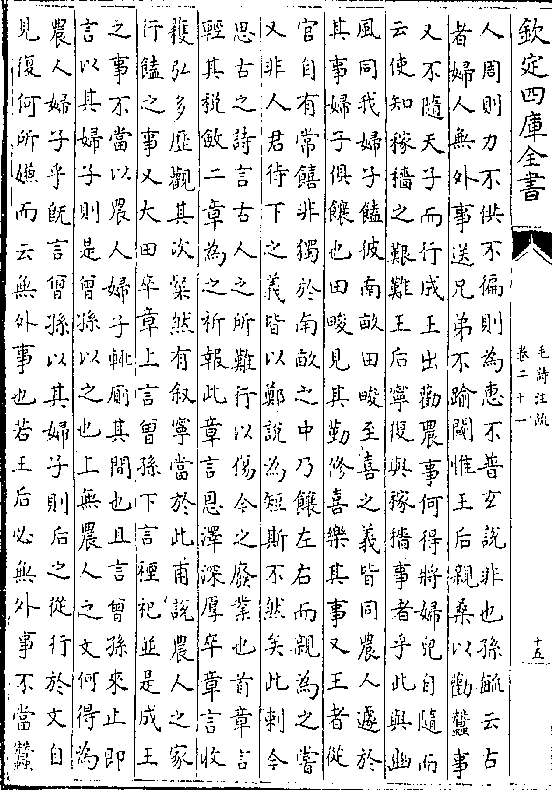 欽定四庫全書
毛詩注疏
卷二十一
十五
人周則力不供不徧則為惠不普玄說非也孫毓云古
者婦人無外事送兄弟不踰閾惟王后親桑以勸蠶事
又不隨天子而行成王出勸農事何得將婦兒自隨而
云使知稼穡之艱難王后寧復與稼穡事者乎此與豳
風同我婦子饁彼南畝田畯至喜之義皆同農人遽於
其事婦子俱饟也田畯見其勤修喜樂其事又王者從
官自有常饎非獨於南畝之中乃饟左右而親為之嘗
又非人君待下之義皆以鄭說為短斯不然矣此刺今
思古之詩言古人之所難行以傷今之廢業也首章言
輕其稅斂二章為之祈報此章言恩澤深厚卒章言收
穫弘多歷觀其次粲然有叙寧當於此甫說農人之家
行饁之事又大田卒章上言曾孫下言禋祀並是成王
之事不當以農人婦子輒廁其間也且言曾孫來止即
言以其婦子則是曾孫以之也上無農人之文何得為
農人婦子乎既言曾孫以其婦子則后之從行於文自
見復何所嫌而云無外事也若王后必無外事不當蠶